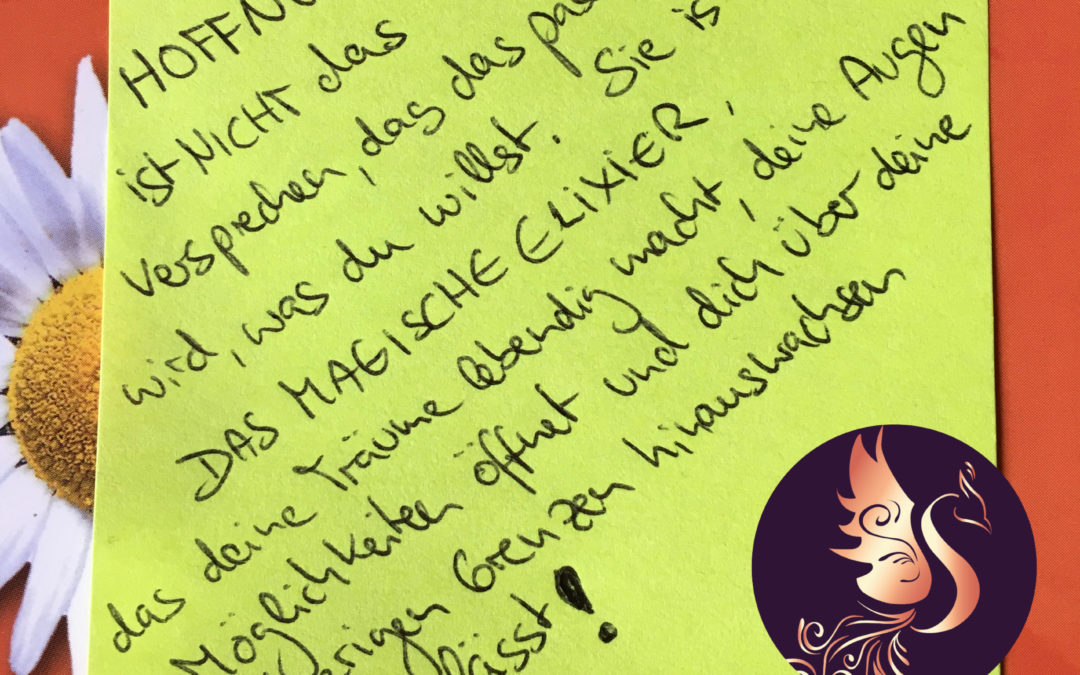 HOFFNU
ist NICHT das
Versprechen, das das pa
wird, was du willst. Sie is
DAS MAGISCHE ELIXIER,
das deine Träume lebendig macht, deine Augen
Möglichkeiten öffnet und dich über deine
erigen Grenzen hinauswachsen
lässt!